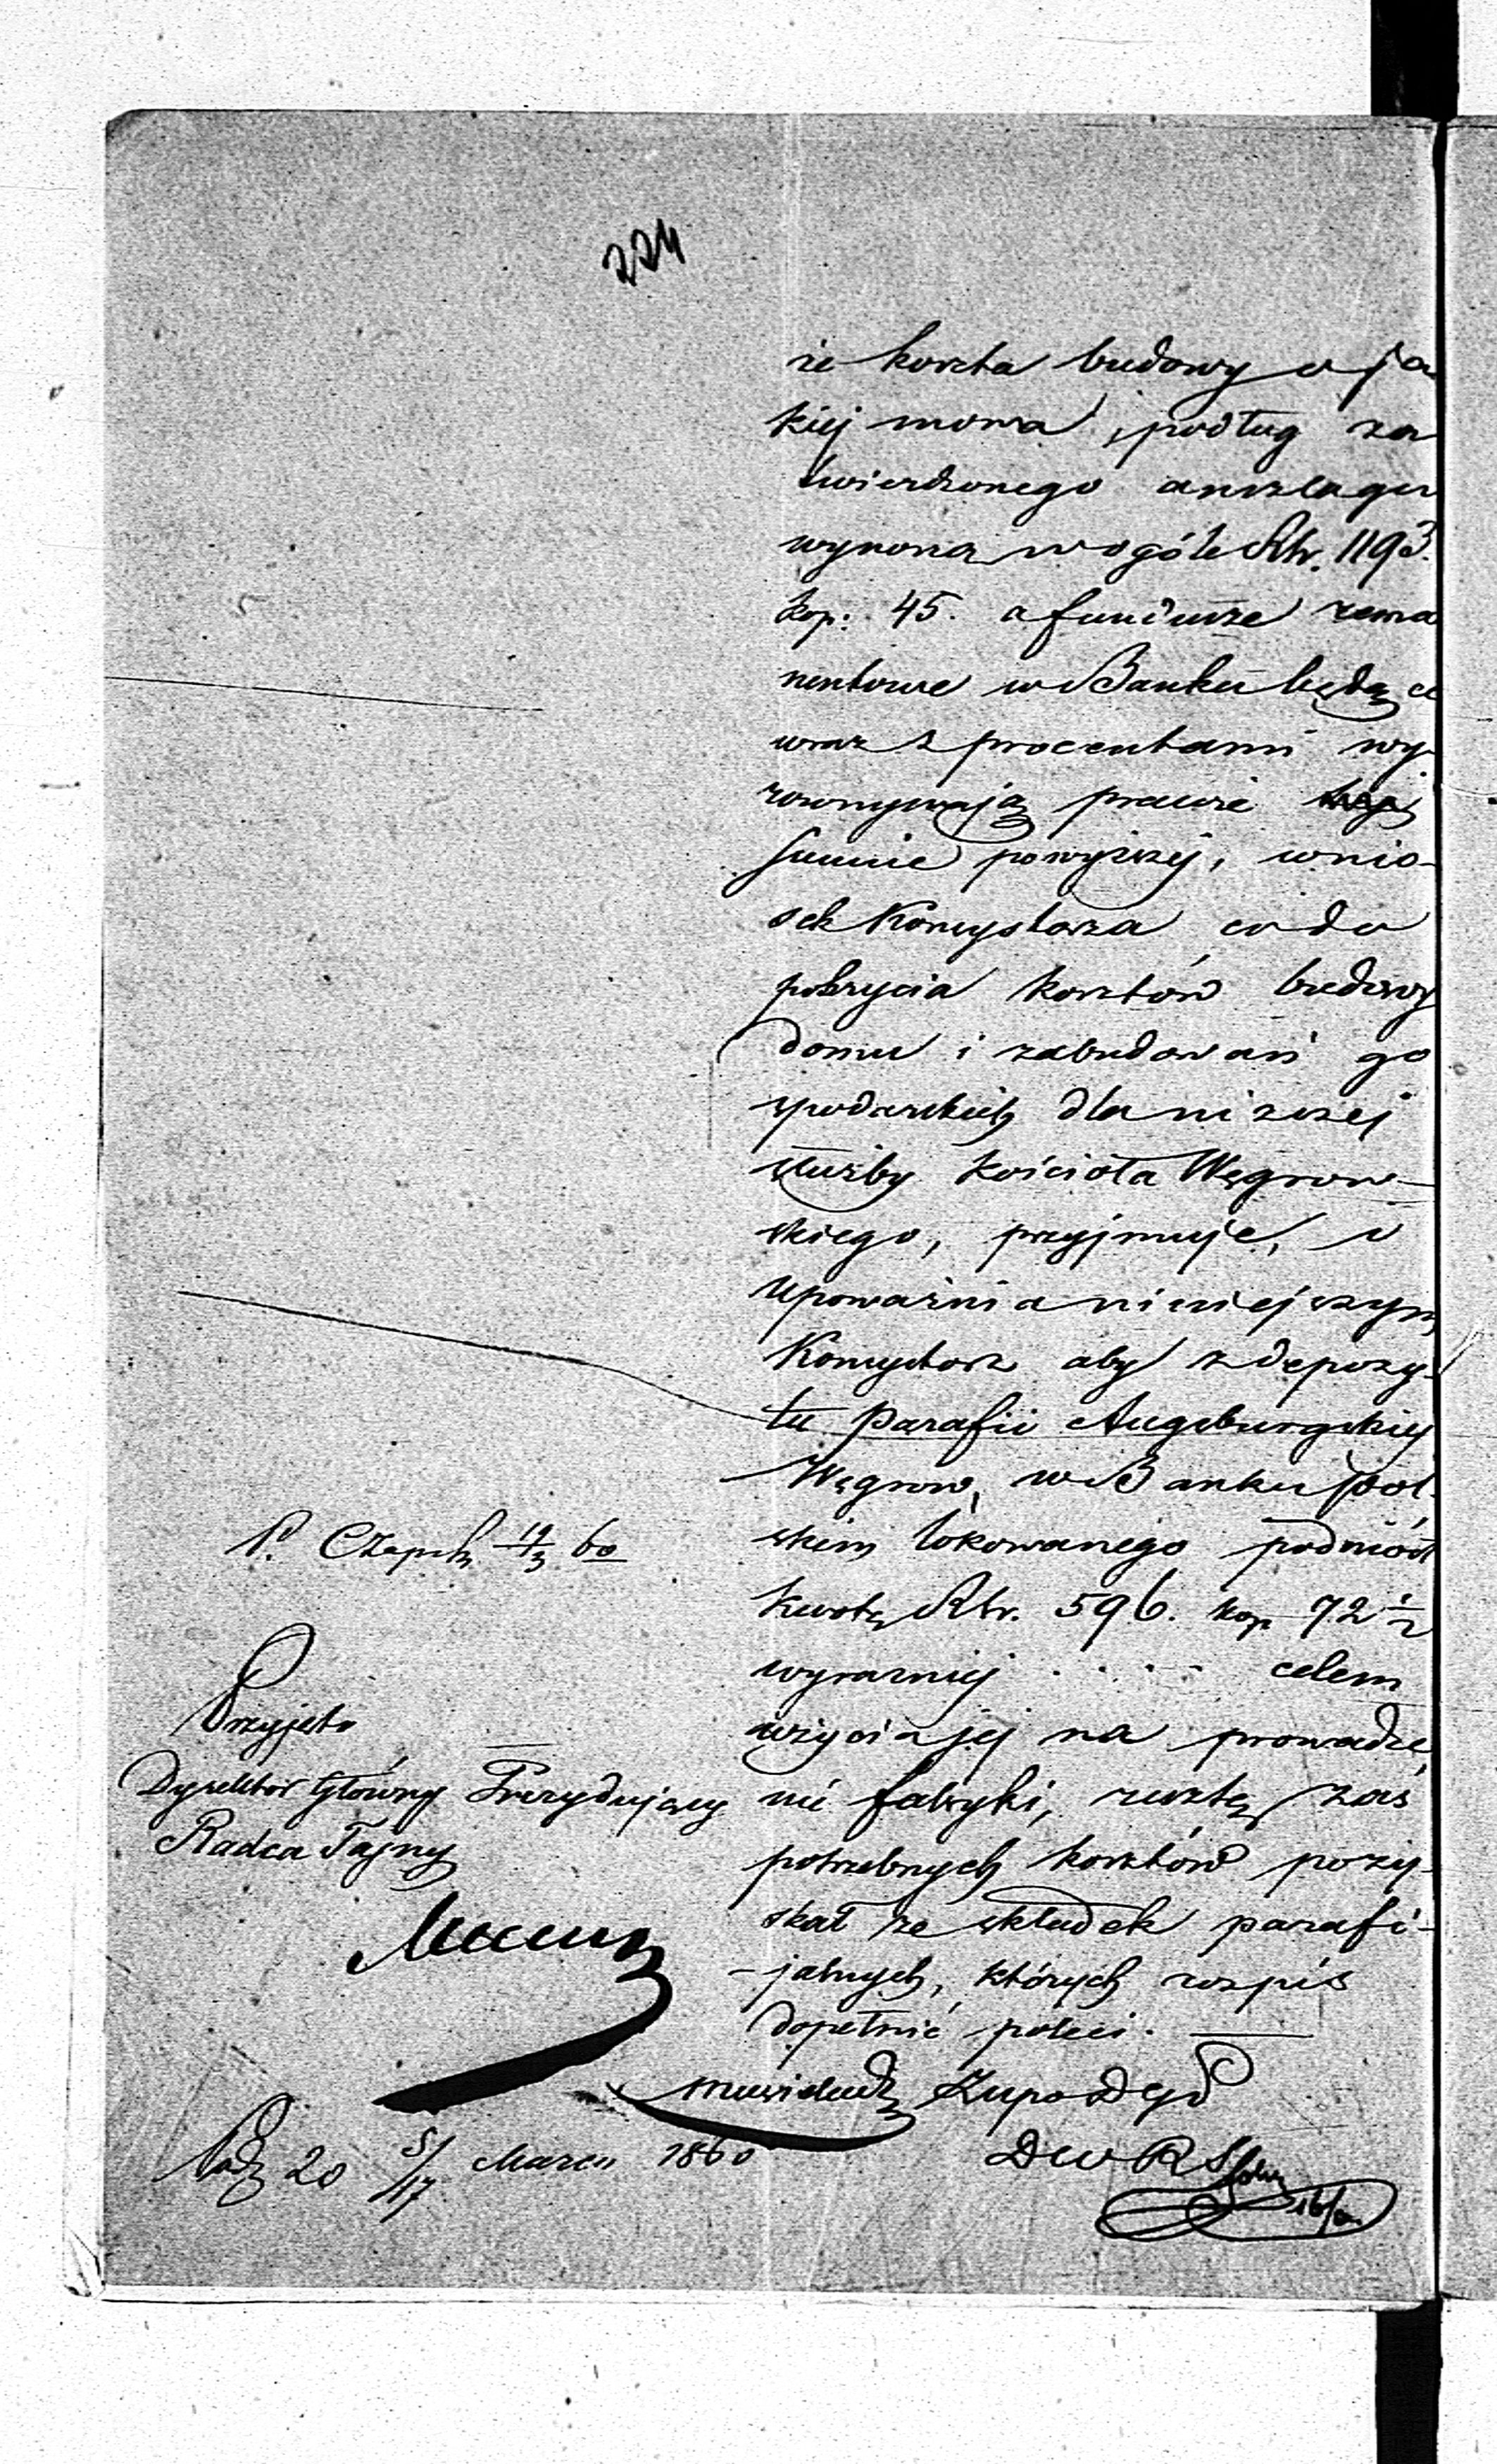 224
że koszta budowy o ja
kiej mowa, podług za
twierdzonego anszlagu
wynoszą w ogóle Rbr. 1193.
kop: 45. a fundusze rema
nentowe w Banku będące
wraz z procentami wy
równywają prawie
summie powyższej, wnio-
sek Konsystorza co do
pokrycia kosztów budowy
domu i zabudowań go
spodarskich dla niższej
służby kościoła Węgrow-
skiego, przyjmuje, i
upoważnia niniejszym
Konsystorz aby z depozy-
tu parafii Augsburgskiej
Węgrow, w Banku Pol-
skim lokowanego podniósł
kwotę Rbr. 596. kop 72 1/2
wyraźniej . . . . celem
użycia jej na prowadze
nie fabryki, resztę zaś
potrzebnych kosztów pozy-
skał ze składek parafi-
-jalnych, których rozpis
dopełnić poleci.
P. Czapch 14/3 60
Przyjęto
Dyrektor Główny Prezydujący
Radca Tajny
20 5/17 Marca 1860
D W R S